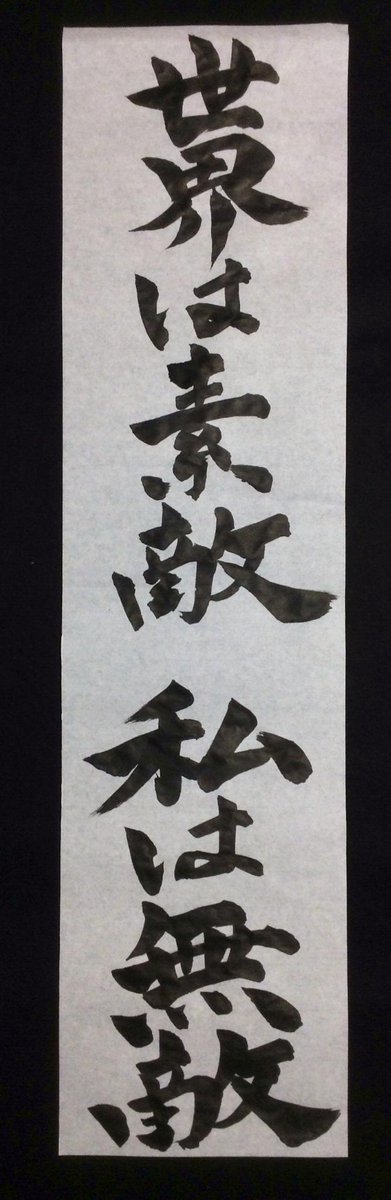 世界は素敵 私は無敵